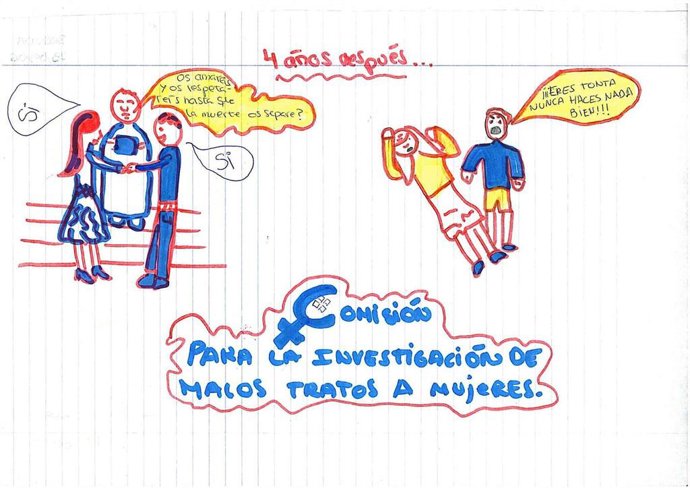 4 años después...
Os amaréis
y os respeta-
réis hasta que
la muerte os separe?
Si
Si
¡¡¡ERES TONTA
NUNCA HACES NADA
BIEN!!!
COMISIÓN
PARA LA INVESTIGACIÓN DE
MALOS TRATOS A MUJERES.